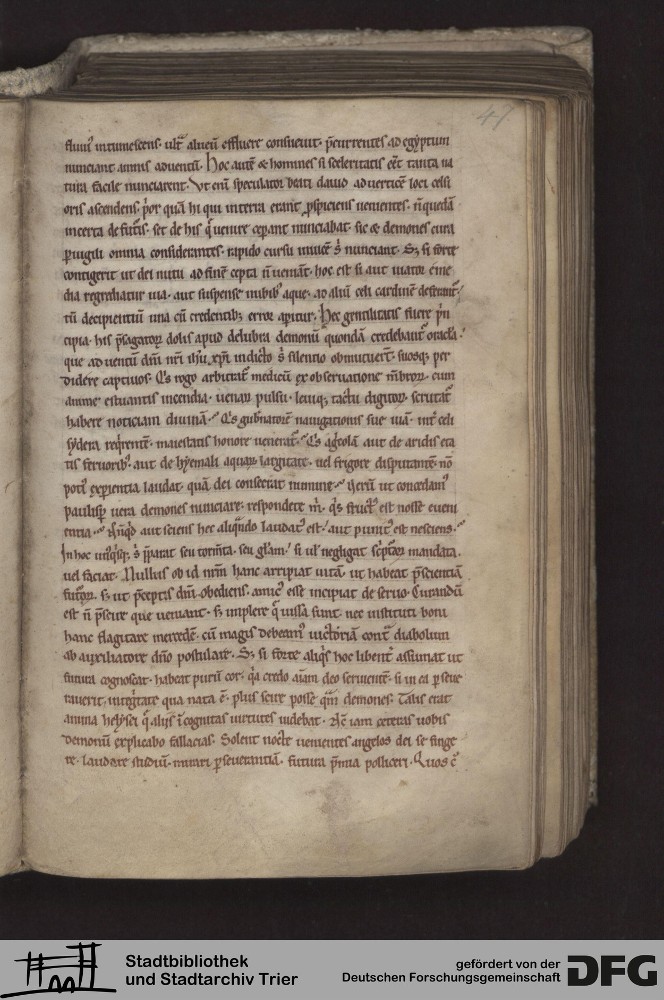 47
fluuiꝰ intumescens · ult̄ alueū effluere consueuit · p̄currentes ad egyptum
nunciant amnis aduentū · Hoc autē & homines si sceleritatis eēt tanta na
tura facile nunciarent · Vt enī speculator beati dauid ad verticē loci celsi
oris ascendens · p̄or quā hi qui in terra erant ꝓspiciens uenientes · n̄ quedā
incerta de futīs · set de his q̄ uenire ceperant nunciabat · sic & demones cura
ꝑuigili omnia considerantes · rapido cursu inuicē s̄ nunciant · Sꝫ si forte
contigerit ut dei nutu ad finē cepta n̄ ueniāt · hoc est si aut uiator e medi
dia regrediatur uia · aut suspense nubibꝰ aque · ad aliū celi cardinē deferant᷑ ·
tū decipientiū una cū credentibꝫ error aꝑitur · Hec gentilitatis fuere p̄n
cipia · his p̄sagatorꝝ dolis apud delubra demonū quondā credebant᷑ oracla ·
que aduentū dn̄i nr̄i ihū xp̄i indicto s̄ silentio obmutuerт̄ · suosqꝫ per
didere captiuos · Qis rogo arbitrat᷑ medicū ex obseruatione mēbrorꝝ · cum
anime estuantis incendia · uenarū pulsu · leuiqꝫ tactu digitorꝝ · scrutat᷑
habere noticiam diuinā · Qis gubnatorē nauigationis sue uiā · int̄ celi
sydera reqͥrentē · maiestatis honore uenerat᷑ · Qis agͥcolā aut de aridis esta
tis feruoribꝰ · aut de hyemali aquarū largitate · uel frigore disputantē · nō
potiꝰ experientia laudat · quā dei consecrat numine · Verū ut concedamꝰ
paulisꝑ uera demones nunciare · respondete m̄ · qͥs fructꝰ est nosse euen
entia · Nūqͥd aut sciens hec aliqͥndo laudatꝰ est · aut punitꝰ est nesciens ·
In hoc unꝰqͥsqꝫ s̄ p̄parat seu tormēta · seu glāam · si ul᷑ negligat sc̄pturaꝝ mandata ·
uel faciat · Nullus ob id nr̄m hanc arripiat uitā · ut habeat p̄scientiā
futurorꝝ · sꝫ ut p̄ceptis dn̄i obediens · amicꝰ esse incipiat de seruo · Curandū
est n̄ p̄scire que ueniant · sꝫ implere q̄ iussa sunt · nec instituti boni
hanc flagitare mercedē · cū magis debeamꝰ uictoriā cont̄ diabolum
ab auxiliatore dn̄o postulare · Sꝫ si forte aliqͥs hoc libent̄ assumat ut
futura cognoscat · habeat purū cor · qͥa credo aīam deo seruientē · si in ea ꝑseue
rauerit · intgͥtate qua nata ē · plus scire posse qm̄ demones · Talis erat
anima helysei q̄ alijs īcognitas uirtutes uidebat · Nē iam ceteras uobis
demonū explicabo fallacias · Solent nocte uenientes angelos dei se finge
re · laudare studiū · mirari ꝑseuerantiā · futura p̄mia polliceri · Quos c̄
Stadtbibliothek
und Stadtarchiv Trier
gefördert von der
Deutschen Forschungsgemeinschaft
DFG